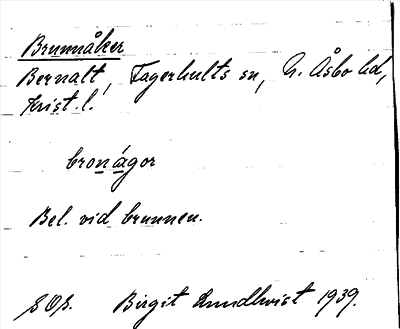 Brunnåker
Bernalt, Fagerhults sn, N. Åsbo hd,
Krist. l.
bronágor
Bel. vid brunnen.
SOB. Birgit Lundkvist 1939.